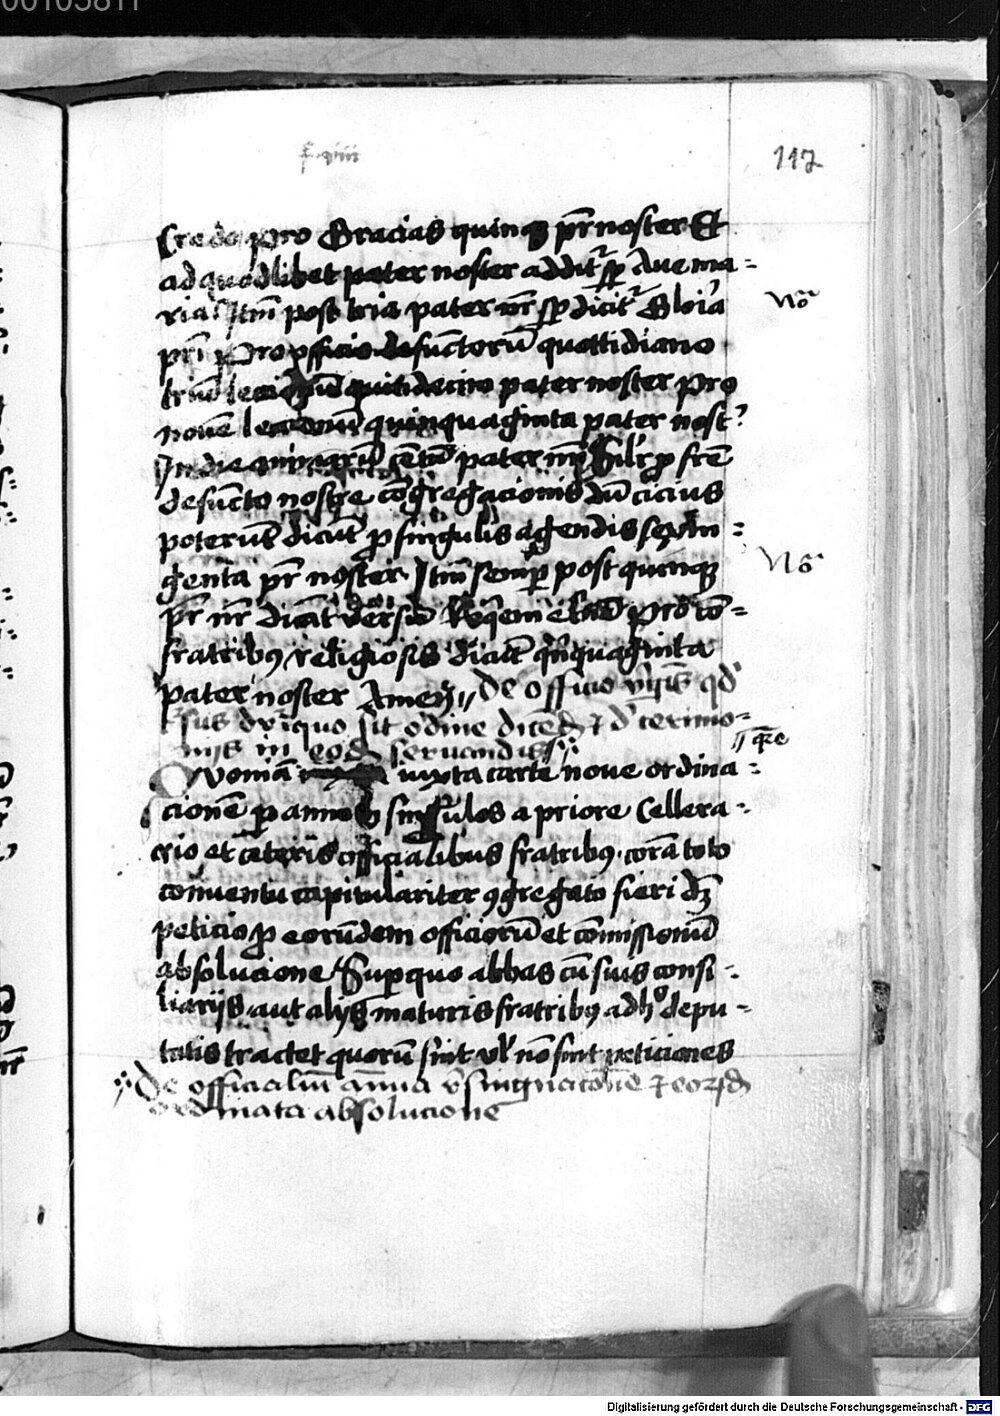 00105811
f. viii
117
Credo Pro Gracias quinqꝫ pr̄ noster Et
ad quodlibet pater noster addit᷑ sp̄ Aue ma=
ria Itm̄ post tria pater nr̄ sp̄ dicit᷑ Gloria
Nōᵃ
pr̄i Pro officio defunctorū quottidiano
triū leccionū quindecim pater noster Pro
nouē leccionū quinquaginta pater nost᷑
In die centū pater nr̄ Silr̄ p̄ frē
defuncto nostre cōgregacionis dū cicius
poterūt dicūt p̄ singulis agendis septin=
genta pr̄ noster Itm̄ semp̄ post quinqꝫ
Nōᵃ
pr̄ nr̄ dicāt versū Requiem eternā Pro cō=
fratribꝯ religiosis dicūt qn̄quaginta
pater noster Amen // De officio
quo sit ordine dicēdū ⁊ d' cerimo=
niis in eodē seruandis
// qr̄e
Quoniā iuxta carte noue ordina=
cionē p̄ annos singulos a priore Cellera=
rio et ceteris officialibus fratribꝯ corā toto
conuentu capitulariter ꝯgregato fieri dꝫ
peticio p̄ eorūdem officiorū et cōmissionū
absolucione Sup̄ quo abbas cū suis consi=
liariis aut aliis maturis fratribꝯ ad hᵒ depu=
tatis tractet quorū sint vl' nō sint peticiones
De officialiū annua ⁊ eorūdē
ordinata absolucione
Digitalisierung gefördert durch die Deutsche Forschungsgemeinschaft - DFG